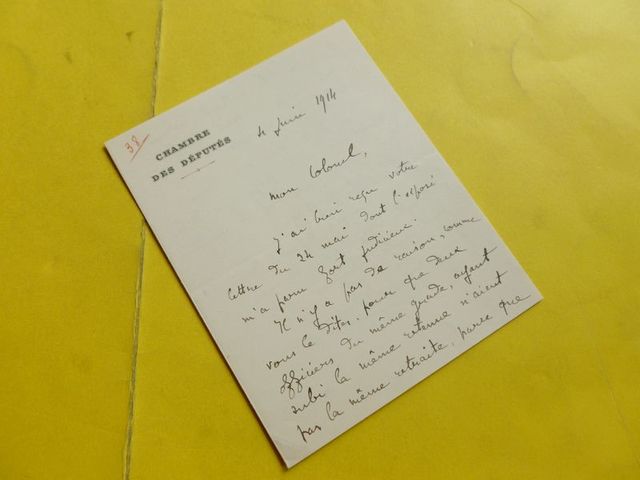 38
CHAMBRE
DES DÉPUTÉS
4 Juin 1914
Mon Colonel,
J'ai bien reçu votre
lettre du 24 mai dont l'exposé
m'a paru fort judicieux.
Il n'y a pas de raison, comme
vous le dites, pour que deux
officiers du même grade, ayant
subi la même retenue n'aient
pas la même retraite, parce que